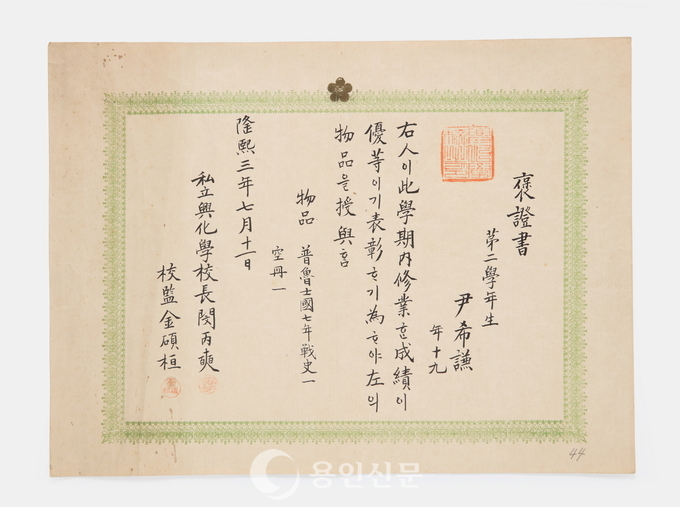 褒證書
第二學年生
尹希謙
年十九
右人이此學期內修業한成績이
優等이기表彰하기為하야左의
物品을授與홈
物品 普魯士國七年戰史一
空冊一
隆熙三年七月十一日
私立興化學校長閔丙奭
校監金碩桓
44
용인신문